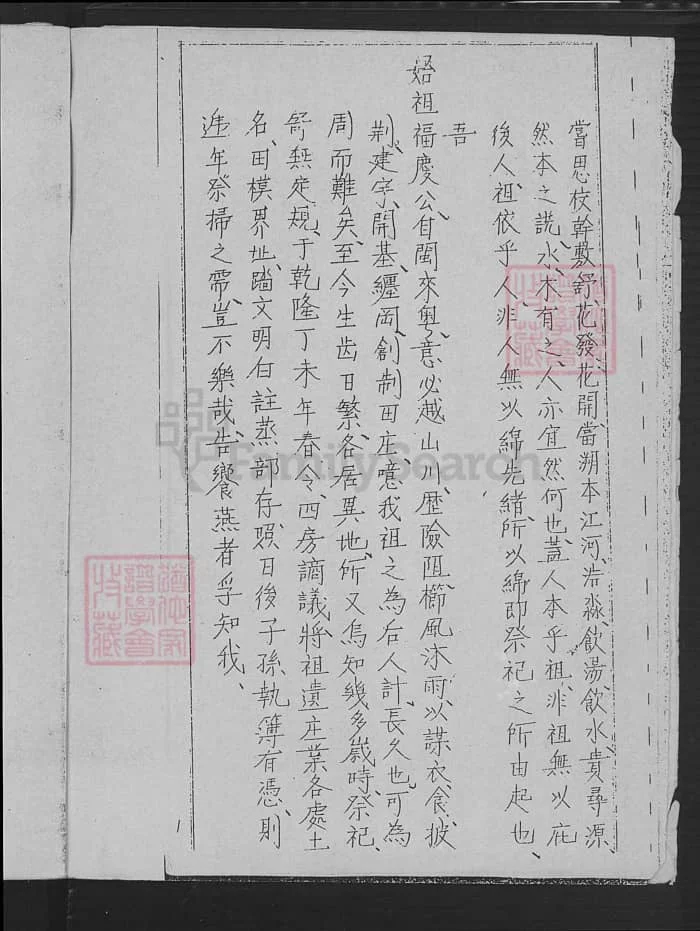 嘗思枝幹敷舒、花發花開、當朔本江河、浩淼、飲湯、飲水、貴尋源、
然本之說、水、木有之、人亦宜然何也、蓋人本乎祖、非祖無以庇
後人、祖依乎人、非人無以綿先緒所以綿即祭祀之所由起也、
吾
始祖福慶公、自閩來粵、意必越山川、歷險阻、櫛風沐雨、以謀衣食、披
荊、建宇、開基、纏岡、創制田庄、噫我祖之為后人計、長久也、可為
周而難矣、至今生齿日繁、各居異地、所又焉知幾多歲時、祭祀、
舒無定規、于乾隆丁未年春令、四房謫議、將祖遺庄業各處土
名、田模界址、踏文明白註蒸部存、照日後子孫執簿有憑、則
逓年祭掃之帶、豈不樂哉、告饗燕者孚知我、
1
FamilySearch
譜學會
收藏
譜學會
收藏